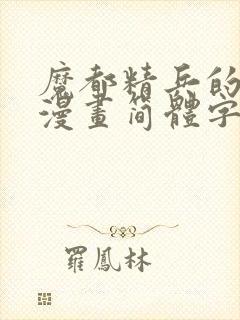 魔都精兵的
漫畫简體字
羅鳳林